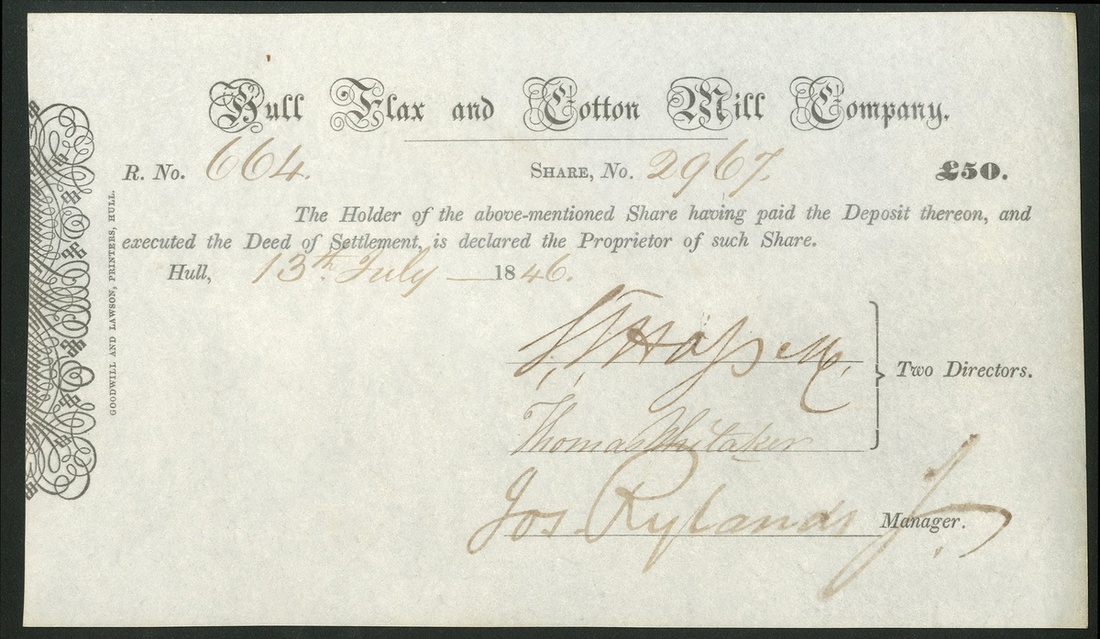 Hull Flax and Cotton Mill Company.
R. No. 664. SHARE, No. 2967. £50.
The Holder of the above-mentioned Share having paid the Deposit thereon, and
executed the Deed of Settlement, is declared the Proprietor of such Share.
Hull, 13th July 1846.
Two Directors.
Thomas Whitaker
Jos Rylands Jr. Manager.
GOODWILL AND LAWSON, PRINTERS, HULL.